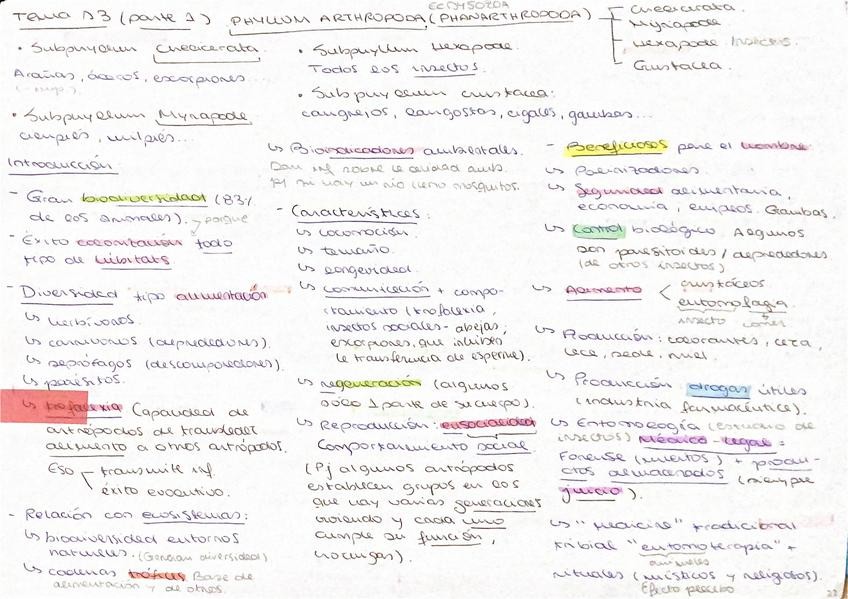 Tema 13 (parte 1) PHYLUM ARTHROPODA (PHANARTHROPODA)
ECDYSOZOA
Cheilcerata.
Myriapode
Hexapode Insectos.
Crustacea.
• Subphyllum Cheilcerata.
Arañas, ácaros, escorpiones...
• Subphyllum Myriapode
ciempiés, milpiés...
• Subphyllum Hexapode.
Todos los insectos.
• Subphyllum crustacea:
cangrejos, langostas, cigalas, gambas...
Introducción:
- Gran biodiversidad (83%
de los animales). porque
- Éxito colonización todo
tipo de hábitats
- Diversidad tipo alimentación
↳ herbívoros.
↳ carnívoros (depredadores).
↳ saprófagos (descomponedores).
↳ parásitos.
↳ trofalexia (capacidad de
artrópodos de transferir
alimento a otros artrópodos.
Eso transmite inf.
éxito evolutivo.
- Relación con ecosistemas:
↳ biodiversidad entornos
naturales. (Generan diversidad)
↳ cadenas tróficas Base de
alimentación y de otros.
↳ Bioindicadores ambientales.
Dan inf sobre la calidad amb.
Pj si hay un río lleno mosquitos.
- Características:
↳ locomoción.
↳ tamaño.
↳ longevidad.
↳ comunicación + compo-
rtamiento (trofalexia,
insectos sociales - abejas,
escorpiones, que inhiben
la transferencia de esperma).
↳ regeneración (algunos
sólo 1 parte de su cuerpo).
↳ Reproducción: eusocialidad
Comportamiento social
(Pj algunos artrópodos
establecen grupos en los
que hay varias generaciones
viviendo y cada uno
cumple su función,
hormigas).
- Beneficiosos para el hombre:
↳ Polinizadores.
↳ Seguridad alimentaria,
economía, empleos. Gambas.
↳ Control biológico. Algunos
son parasitoides / depredadores
(de otros insectos)
↳ Alimento crustáceos.
entomofagia.
insecto comer
↳ Producción: colorantes, cera,
laca, seda, miel.
↳ Producción drogas útiles
(industria farmacéutica).
↳ Entomología (estudio de
insectos) Médico-legal =
Forense (muertos) + produ-
ctos almacenados (siempre
juicio).
↳ "Medicina" tradicional
tribial "entomoterapia" +
animales
rituales (místicos y religiosos).
Efecto placebo
22